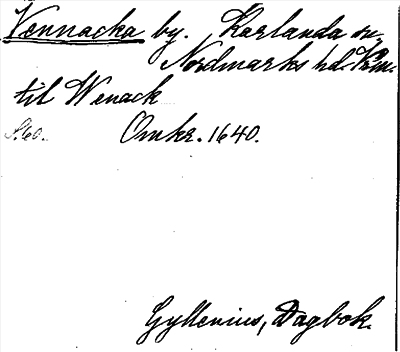 Vennacka by. Karlanda sn,
Nordmarks hd. Värm.
til Wenack
S. 60. Omkr. 1640.
Gyllenius, Dagbok.